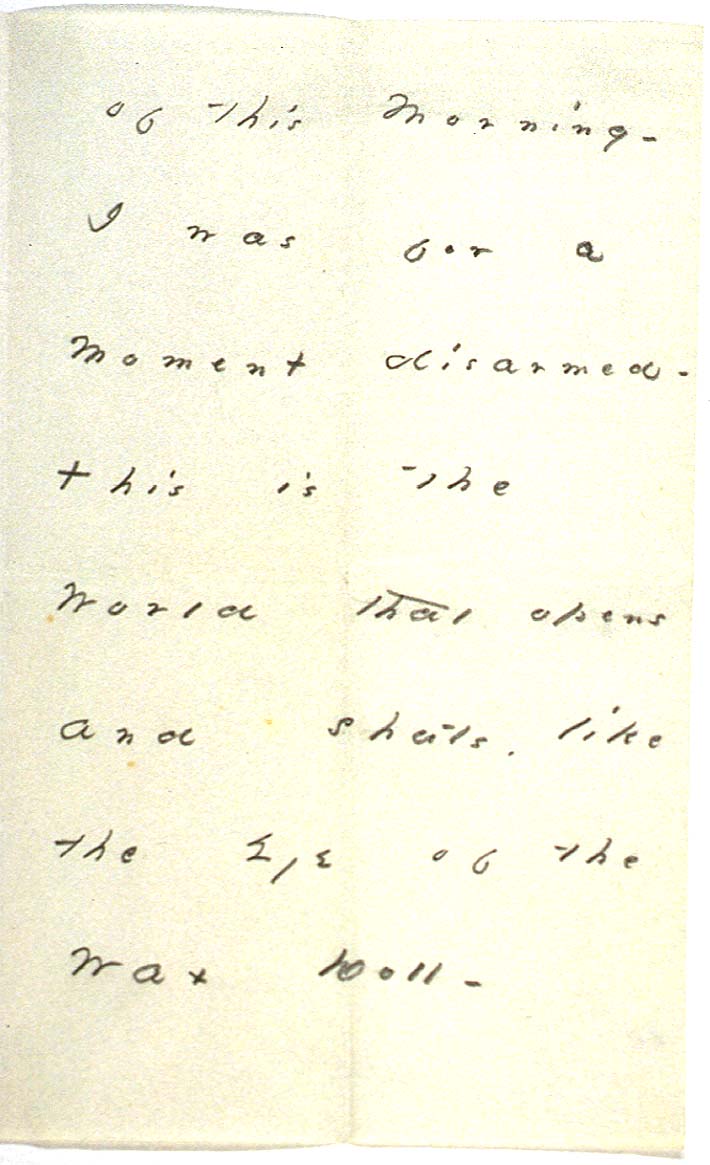 of this Morning -
I was for a
Moment disarmed -
this is the
World that opens
and shuts, like
the Eye of the
Wax Doll -